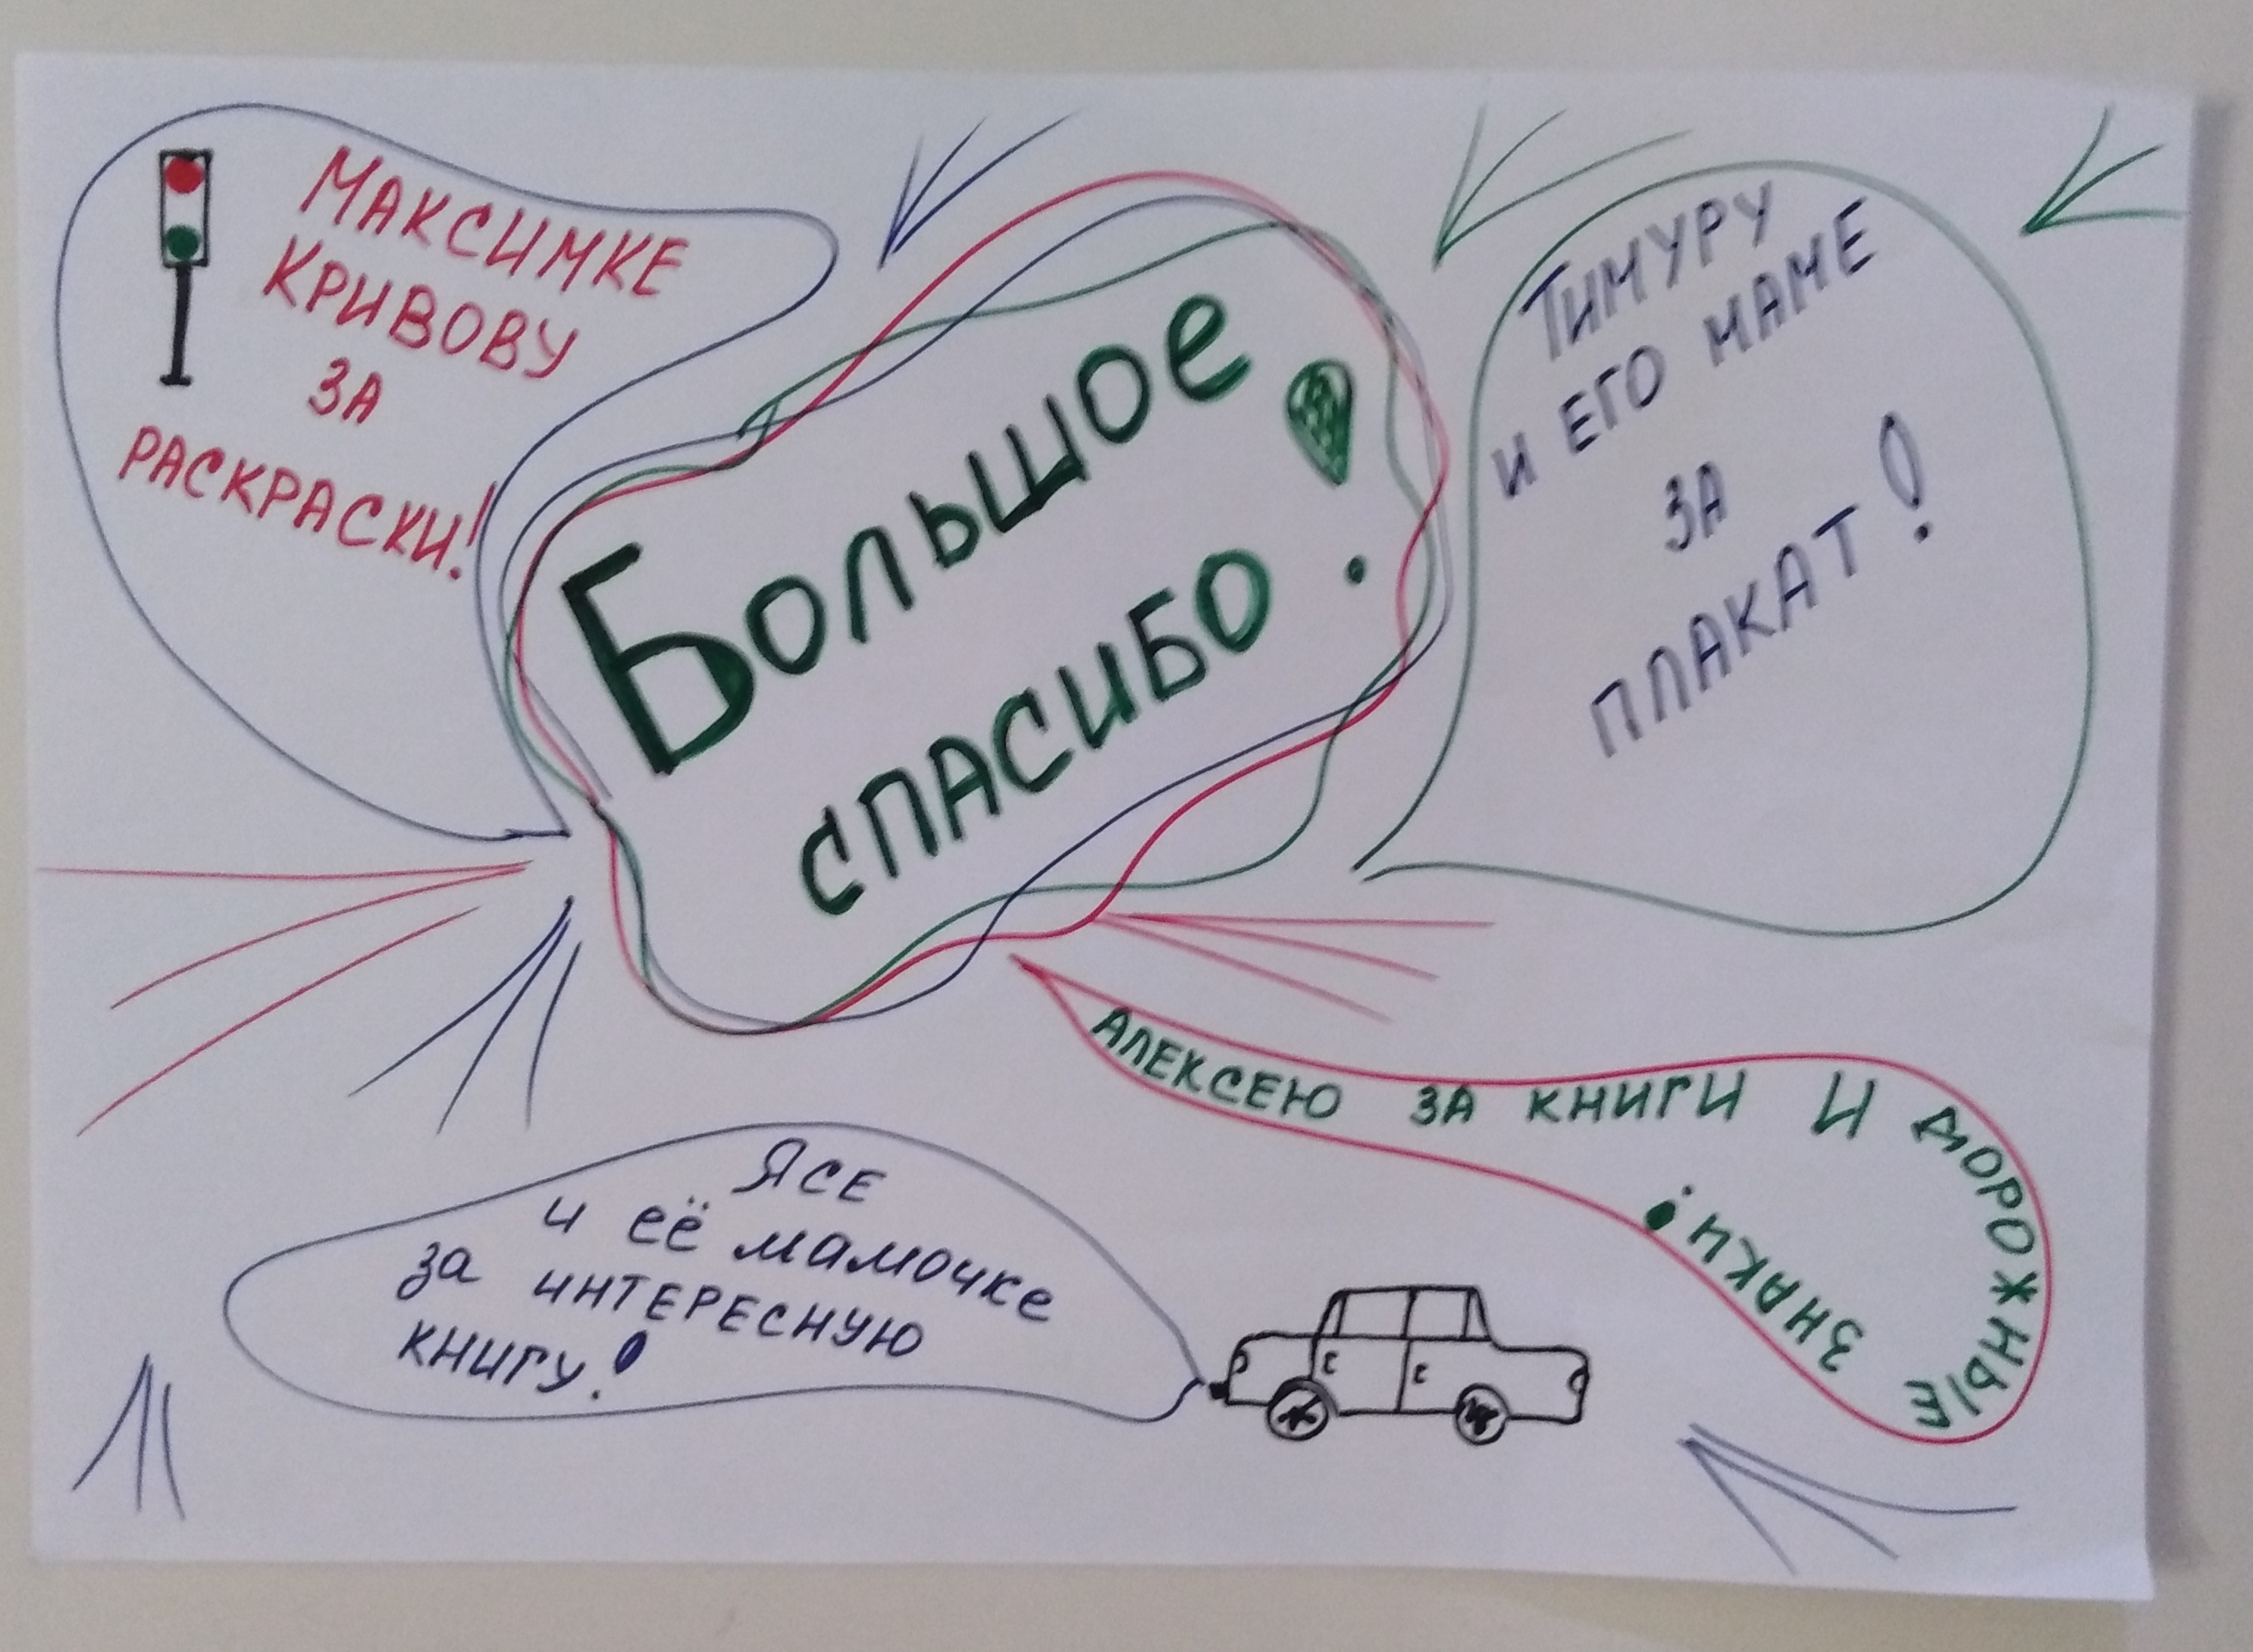 МАКСИМКЕ
КРИВОВУ
ЗА
РАСКРАСКИ!
БОЛЬШОЕ
СПАСИБО!
ТИМУРУ
И ЕГО МАМЕ
ЗА
ПЛАКАТ!
АЛЕКСЕЮ ЗА КНИГИ И ДОРОЖНЫЕ
ЗНАКИ!
ЯСЕ
и её мамочке
за ИНТЕРЕСНУЮ
КНИГУ!